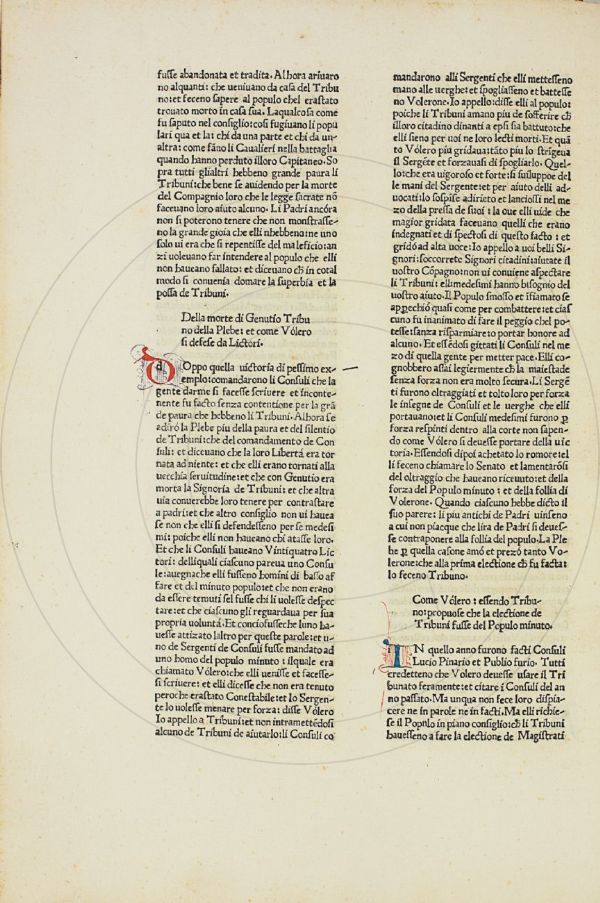 fusse abandonata et tradita. Alhora ariuaro
no alquanti: che ueniuano da casa del Tribu
no: et feceno sapere al populo chel erastato
trouato morto in casa sua. Laqualcosa come
fu saputo nel consiglio: cosi fugiuano li popu
lari qua et la: chi da una parte et chi da un-
altra: come fāno li Caualieri nella battaglia
quando hanno perduto illoro Capitaneo. So
pra tutti glialtri hebbeno grande paura li
Tribuni: che bene se auidendo per la morte
del Compagnio loro che le legge sacrate nō
faceuano loro aiuto alcuno. Li Padri ancóra
non si poterono tenere che non monstrasse-
no la grande gioia che elli nhebbeno: ne uno
solo ui era che si repentisse del maleficio: an
zi uoleuano far intendere al populo che elli
non haueano fallato: et diceuano ch̄ in cotal
modo si conuenia domare la superbia et la
possa de Tribuni.
Della morte di Genutio Tribu
no della Plebe: et come Vólero
si defese da Lictori.
DOppo quella uictoria di pessimo ex-
emplo: comandarono li Consuli che la
gente darme si facesse scriuere et inconte-
nente fu facto senza contentione per la grā
de paura che hebbeno li Tribuni. Alhora se
adiró la Plebe piu della paura et del silentio
de Tribuni: che del comandamento de Con
suli: et diceuano che la loro Libertá era tor
nata adniente: et che elli erano tornati alla
uecchia seruitudine: et che con Genutio era
morta la Signoria de Tribuni: et che altra
uia conuerebbe loro tenere per contrastare
a padri: et che altro consiglio non ui hauea
se non che elli si defendesseno per se medesi
mi: poiche elli non haueano chi atasse loro.
Et che li Consuli haueano Vintiquatro Lic
tori: delliquali ciascuno pareua uno Consu
le: auegnache elli fusseno homini di basso af
fare et del minuto populo: et che non erano
da essere temuti sel fusse chi li uolesse despec
tare: et che ciascuno gli reguardaua per sua
propria uoluntá. Et conciofusseche luno ha-
uesse attizato laltro per queste parole: et u-
no de Sergenti de Consuli fusse mandato ad
uno homo del populo minuto: ilquale era
chiamato Vólero: che elli uenisse et facesse-
si scriuere: et elli dicesse che non era tenuto
peroche erastato Conestabile: et lo Sergen-
te lo uolesse menare per forza: disse Vólero
Io appello a Tribuni: et non intramettēdosi
alcuno de Tribuni de aiutarlo: li Consuli co
mandarono alli Sergenti che elli mettesseno
mano alle uerghe: et spogliasseno et battesse
no Volerone. Io appello: disse elli al populo:
poiche li Tribuni amano piu de sofferire ch̄
illoro citadino dinanti a epsi sia battuto: che
elli sieno per uoi ne loro lecti morti. Et quā
to Vólero piu gridaua: tāto piu lo strigeua
il Sergēte et forzauasi di spogliarlo. Quel-
lo: che era uigoroso et forte: si suiluppoe del
le mani del Sergente: et per aiuto delli ad-
uocati: lo sospise adirieto et lanciossi nel me
zo della pressa de suoi: la oue elli uide che
magior gridata faceuano quelli che erano
indegnati et di spectosi di questo facto: et
gridó ad alta uoce: Io appello a uoi belli Si
gnori: soccorrete Signori citadini: aiutate il
uostro Cōpagno: non ui conuiene aspectare
li Tribuni: ellimedesimi hanno bisognio del
uostro aiuto. Il Populo smosso et ifiamato se
apꝑechió quasi come per combattere: et cias
cuno fu inanimato di fare il peggio chel po-
tesse: sanza risparmiare to portar honore ad
alcuno. Et essēdosi gittati li Consuli nel me
zo di quella gente per metter pace. Elli co-
gnobbero assai legiermente ch̄ la maiestade
senza forza non era molto secura. Li Sergē
ti furono oltraggiati et tolto loro per forza
le insegne de Consuli et le uerghe che elli
portauano: et li Consuli medesimi furono ꝑ
forza respinti dentro alla corte non sapen-
do come Vólero si deuesse portare della uic
toria. Essendosi dipoi achetato lo romore: el
li feceno chiamare lo Senato et lamentarósi
del oltraggio che haueano riceuuto: et della
forza del Populo minuto: et della follia di
Volerone. Quando ciascuno hebbe dicto il
suo parere: li piu antichi de Padri uinseno
a cui non piacque che lira de Padri si deues-
se contraponere alla follia del populo. La Ple
be ꝑ quella casone amó et prezó tanto Vo-
lerone: che alla prima electione ch̄ fu facta:
lo feceno Tribuno.
Come Vólero: essendo Tribu-
no: propuose che la electione de
Tribuni fusse del Populo minuto.
IN quello anno furono facti Consuli
Lucio Pinario et Publio furio. Tutti
credetteno che Vólero deuesse usare il Tri
bunato feramente: et citare i Consuli del an
no passato. Ma unqua non fece loro dispia-
cere ne in parole ne in facti. Ma elli richie-
se il Popnlo in piano consiglio: ch̄ li Tribuni
hauesseno a fare la electione de Magistrati